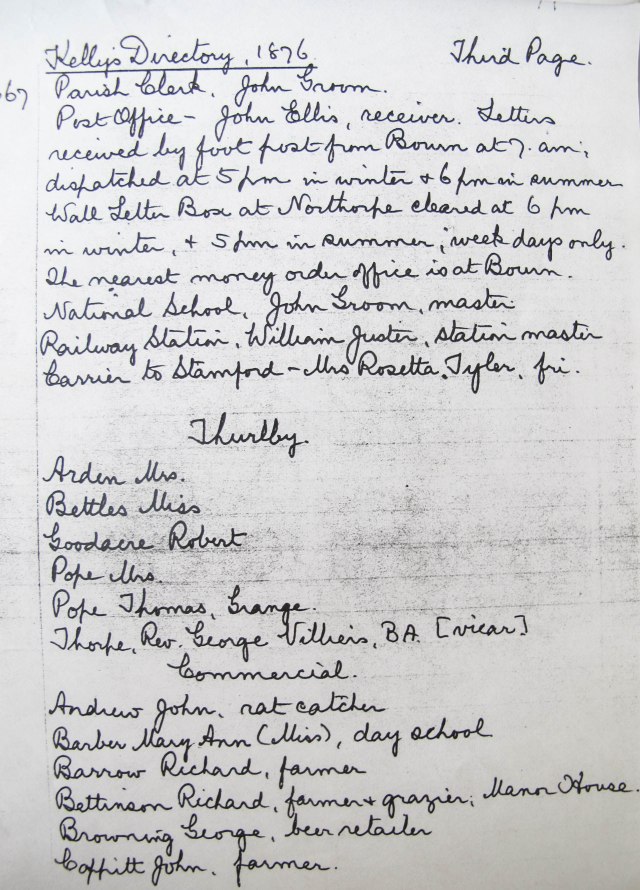 Kellys Directory, 1876. Third Page.
67 Parish Clerk, John Groom.
Post Office - John Ellis, receiver. Letters
received by foot post from Bourn at 7. am;
dispatched at 5 pm in winter & 6 pm in summer
Wall Letter Box at Northorpe cleared at 6 pm
in winter, & 5 pm in summer; week days only.
The nearest money order office is at Bourn.
National School, John Groom, master.
Railway Station, William Juster, station master
Carrier to Stamford - Mrs Rosetta Tyler, fri.
Thurlby.
Arden Mrs.
Bettles Miss
Goodacre Robert
Pope Mrs.
Pope Thomas, Grange.
Thorpe, Rev. George Villiers, BA. [vicar]
Commercial.
Andrew John, rat catcher
Barber Mary Ann (Miss), day school
Barrow Richard, farmer
Bettinson Richard, farmer & grazier; Manor House.
Browning George, beer retailer
John, farmer.